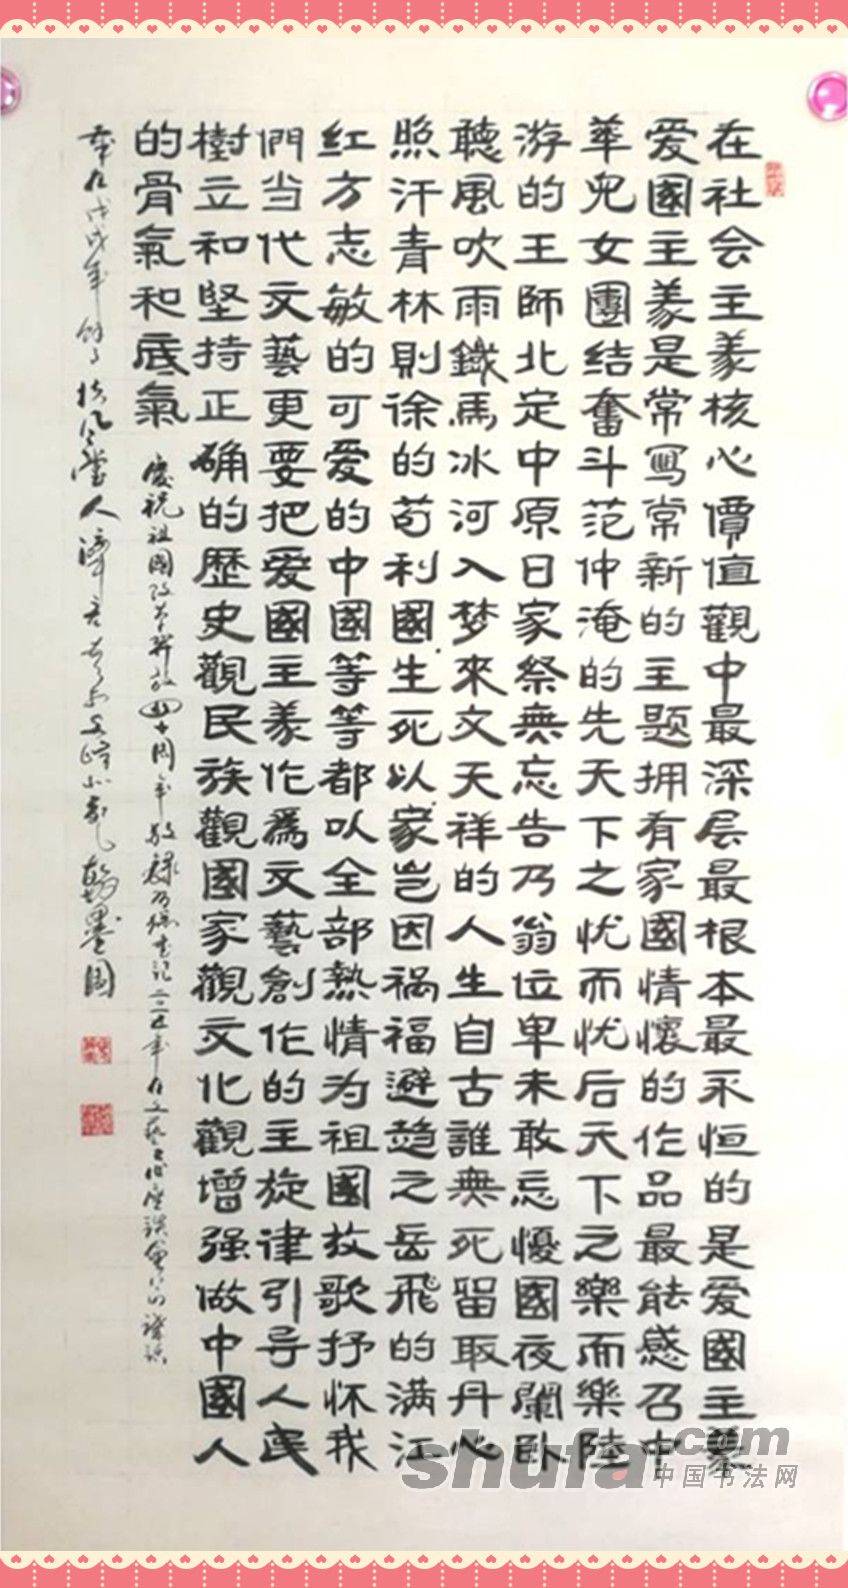 在社会主義核心價值觀中最深层最根本最永恒的是爱國主義
爱國主義是常寫常新的主题拥有家國情懷的作品最能感召中
華兒女團结奮斗范仲淹的先天下之忧而忧后天下之樂而樂陸
游的王師北定中原日家祭無忘告乃翁位卑未敢忘憂國夜闌卧
聽風吹雨鐵馬冰河入梦來文天祥的人生自古誰無死留取丹心
照汗青林則徐的苟利國生死以家岂因祸福避趋之岳飛的满江
红方志敏的可爱的中國等等都以全部熱情为祖國放歌抒怀我
們当代文藝更要把爱國主義作為文藝創作的主旋律引导人民
樹立和堅持正确的歷史觀民族觀國家觀文化觀增强做中國人
的骨氣和底氣
慶祝祖國改革開放四十周年敬錄習總書記二〇一五年在文藝工作座談會上的講話
歲在戊戌年
人
翰墨園
shufa.com
中国书法网